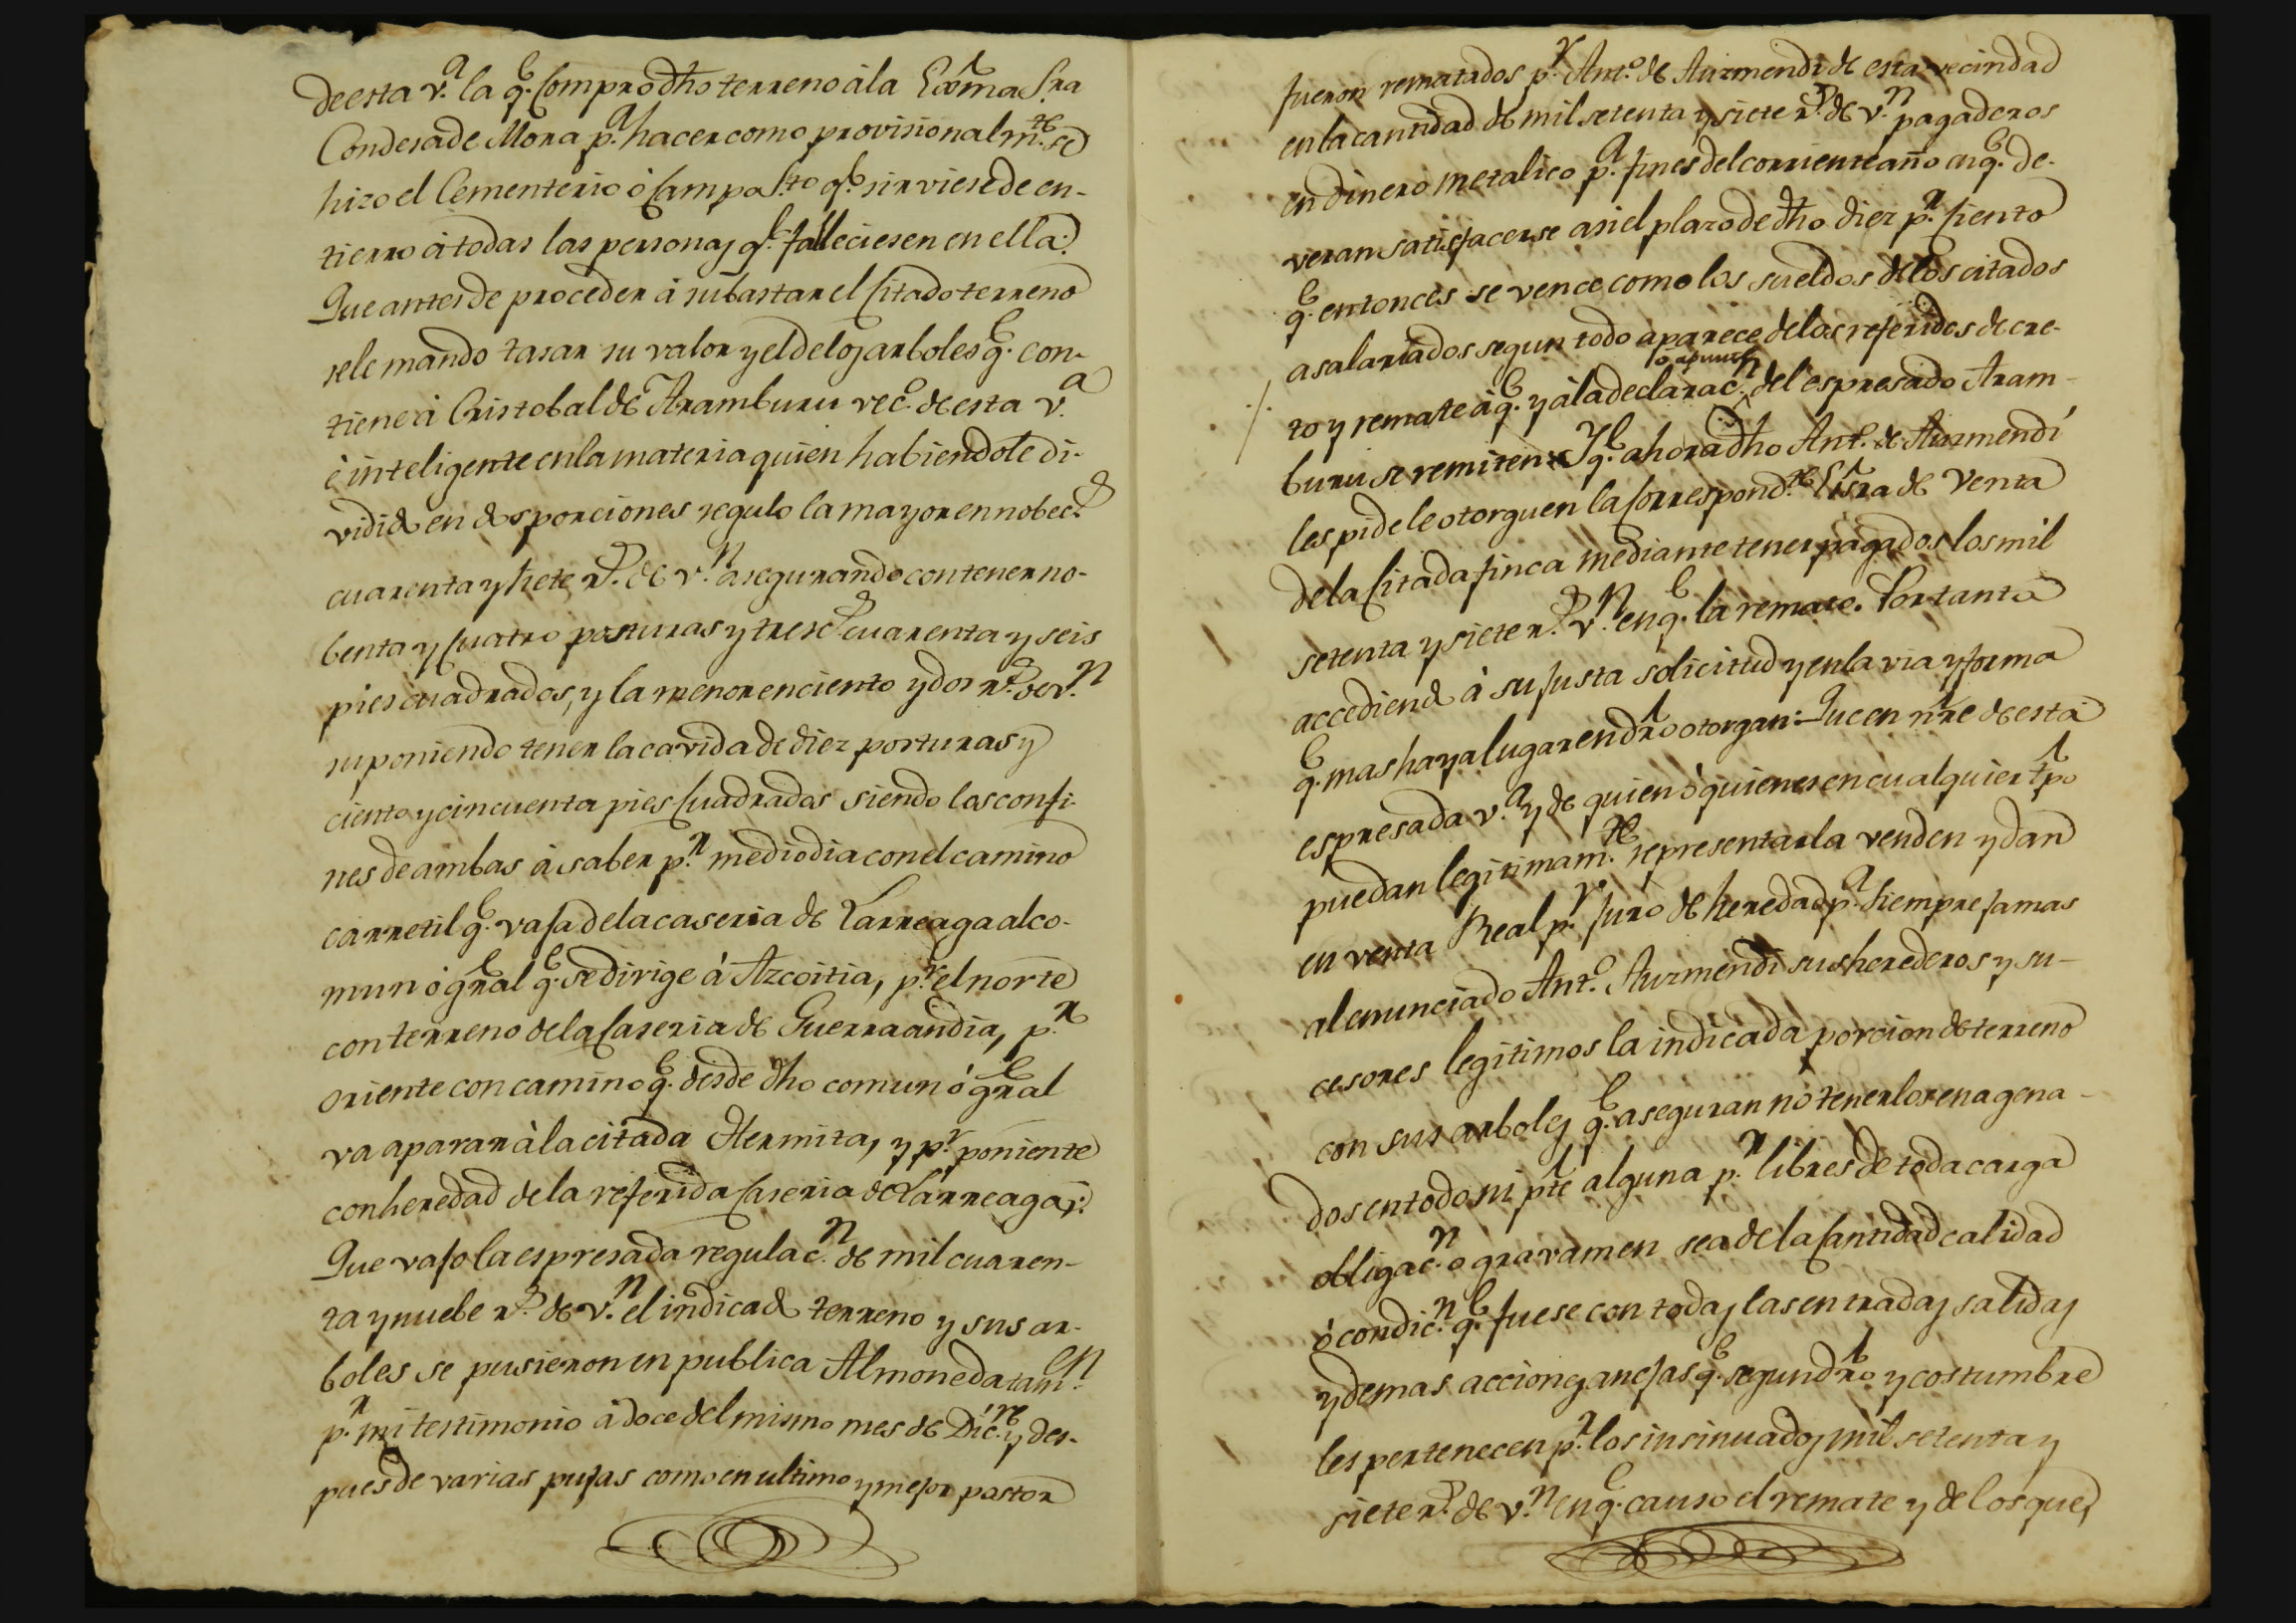 de esta v.ª la q.e compro dho terreno à la Exma Sra
Condesa de Mora p.ª hacer como provisionalm.te se
hizo el Cementerio ó Campo S.to q.e sirviese de en-
tierro à todas las personas q.e falleciesen en ella:
Que antes de proceder à subastar el citado terreno
se le mando tasar su valor y el de los arboles q.e con-
tiene à Cristobal de Aramburu vec.o de esta v.ª
è inteligente en la materia quien habiendole di-
vidido en dos porciones regulo la mayor en nobec.s
cuarenta y siete r.s de v.n asegurando contener no-
benta y cuatro posturas y tresc.s cuarenta y seis
pies cuadrados, y la menor en ciento y dos r.s de v.n
suponiendo tener la cavida de diez posturas y
ciento y cincuenta pies cuadrados siendo los confi-
nes de ambas à saber p.r mediodia con el camino
carretil q.e vaja de la caseria de Larreaga al co-
mun ó gral q.e se dirige à Azcoitia, p.r el norte
con terreno de la Caseria de Guerraandia, p.r
oriente con camino q.e desde dho comun ó gral
va a parar à la citada Hermita, y p.r poniente
con heredad de la referida Caseria de Larreaga:
Que vajo la espresada regulac.n de mil cuaren-
ta y nuebe r.s de v.n el indicado terreno y sus ar-
boles se pusieron en publica Almoneda tam.n
p.r mi testimonio à doce del mismo mes de Dic.re y des-
pues de varias pujas como en ultimo y mejor postor
fueron rematados p.r Ant.o de Aurmendi de esta vecindad
en la cantidad de mil setenta y siete r.s de v.n pagaderos
en dinero metalico p.ª fines del corriente año en q.e de-
veran satisfacerse asi el plazo de dho diez p.r ciento
q.e entonces se vence como los sueldos de los citados
asalariados segun todo aparece de los referidos decre-
o apunte
to y remate à q.e y à la declarac.n del espresado Aram-
buru se remiten: Y q.e ahora dho Ant.o de Aurmendi
les pide le otorguen la correspond.te Esra de Venta
de la citada finca mediante tener pagados los mil
setenta y siete r.s v.n en q.e la remato. Por tanto
accediendo à su justa solicitud y en la via y forma
q.e mas haya lugar en dro otorgan: Que en nre de esta
espresada v.ª y de quien ó quienes en cualquier tpo
puedan legitimam.te representarla venden y dan
en venta Real p.r juro de heredad p.ª siempre jamas
al enunciado Ant.o Aurmendi sus herederos y su-
cesores legitimos la indicada porcion de terreno
con sus arboles q.e aseguran no tenerlos enagena-
dos en todo ni pte alguna p.r libres de toda carga
obligac.n o gravamen sea de la cantidad calidad
ó condic.n q.e fuese con todas las entradas salidas
y demas acciones anejas q.e segun dro y costumbre
les pertenecen p.r los insinuados mil setenta y
siete r.s de v.n en q.e causo el remate y de los que